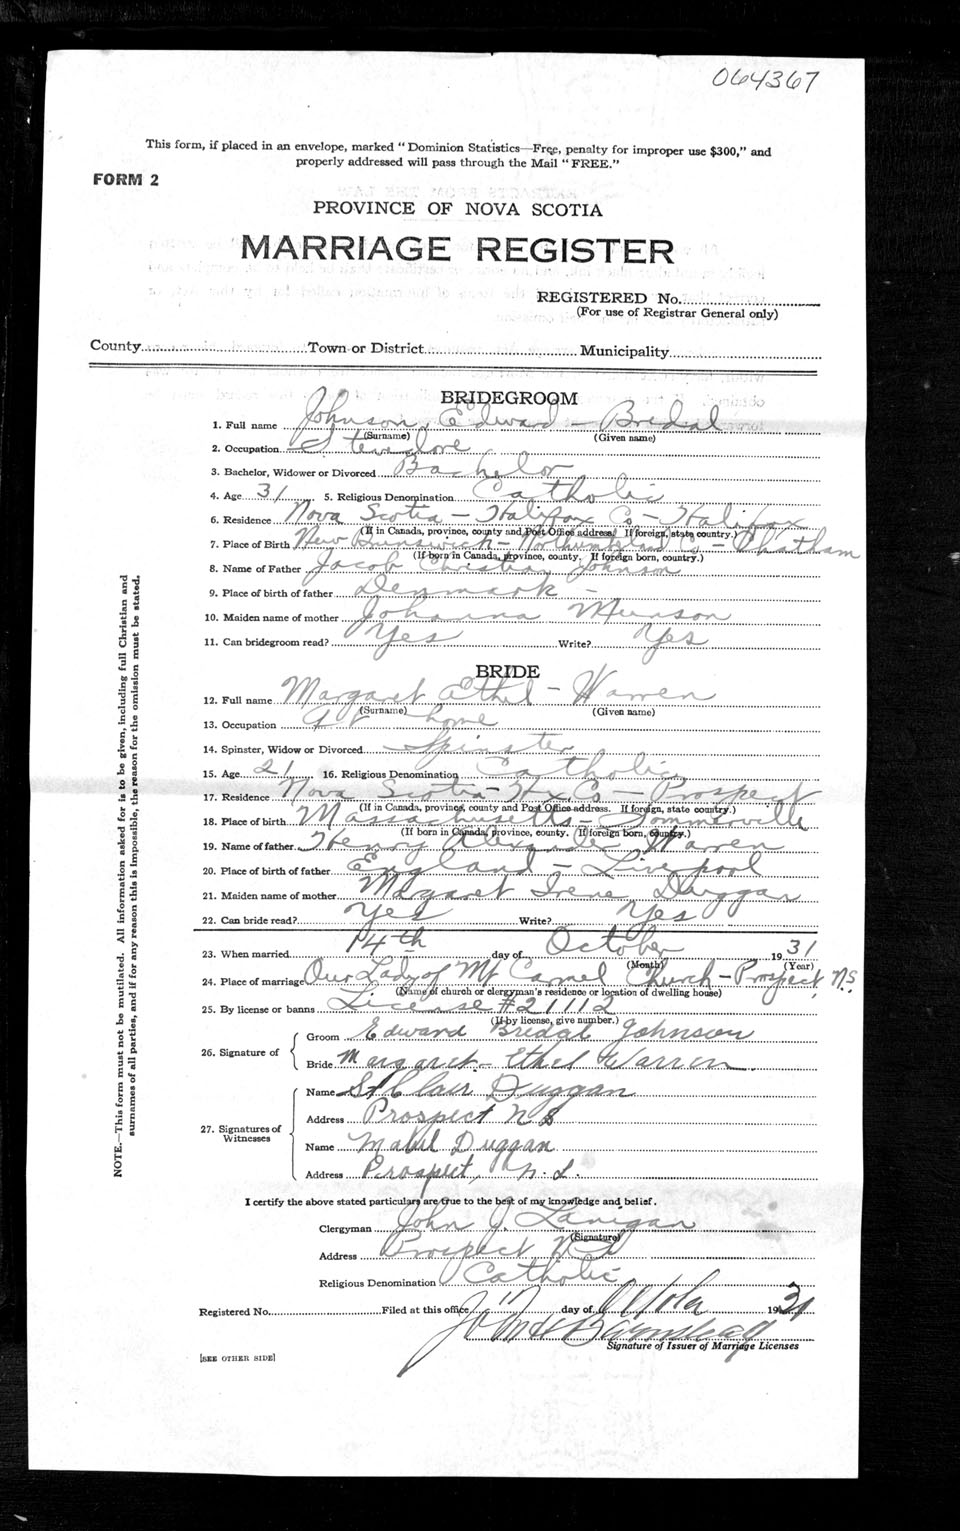 064367
This form, if placed in an envelope, marked "Dominion Statistics—Free, penalty for improper use $300," and
properly addressed will pass through the Mail "FREE."
FORM 2
PROVINCE OF NOVA SCOTIA
MARRIAGE REGISTER
REGISTERED No.
(For use of Registrar General only)
County Town or District Municipality
BRIDEGROOM
1. Full name Johnson, Edward - Bredal
(Surname) (Given name)
2. Occupation Stevedore
3. Bachelor, Widower or Divorced Bachelor
4. Age 31 5. Religious Denomination Catholic
6. Residence Nova Scotia - Halifax Co - Halifax
(If in Canada, province, county and Post Office address. If foreign, state country.)
7. Place of Birth New Brunswick - Northumberland Co - Chatham
(If born in Canada, province, county. If foreign born, country.)
8. Name of Father Jacob Christian Johnson
9. Place of birth of father Denmark -
10. Maiden name of mother Johanna Munson
11. Can bridegroom read? Yes Write? Yes
BRIDE
12. Full name Margaret Ethel - Warren
(Surname) (Given name)
13. Occupation At home
14. Spinster, Widow or Divorced Spinster
15. Age 21 16. Religious Denomination Catholic
17. Residence Nova Scotia - Hx Co - Prospect
(If in Canada, province, county and Post Office address. If foreign, state country.)
18. Place of birth Massachusetts - Sommerville
(If born in Canada, province, county. If foreign born, country.)
19. Name of father Henry Alexander Warren
20. Place of birth of father England - Liverpool
21. Maiden name of mother Margaret Irene Duggan
22. Can bride read? Yes Write? Yes
23. When married 14th day of October 1931
(Month) (Year)
24. Place of marriage Our Lady of Mt Carmel Church - Prospect, N.S.
(Name of church or clergyman's residence or location of dwelling house)
25. By license or banns License #21112
(If by license, give number.)
26. Signature of Groom Edward Bredal Johnson
Bride Margaret - Ethel Warren
27. Signatures of Witnesses
Name St Clair Duggan
Address Prospect N S
Name Mabel Duggan
Address Prospect, N. S.
I certify the above stated particulars are true to the best of my knowledge and belief.
Clergyman John J. Lanigan
(Signature)
Address Prospect N S
Religious Denomination Catholic
Registered No. Filed at this office 17 day of 1931
Signature of Issuer of Marriage Licenses
[SEE OTHER SIDE]
NOTE.—This form must not be mutilated. All information asked for is to be given, including full Christian and
surnames of all parties, and if for any reason this is impossible, the reason for the omission must be stated.